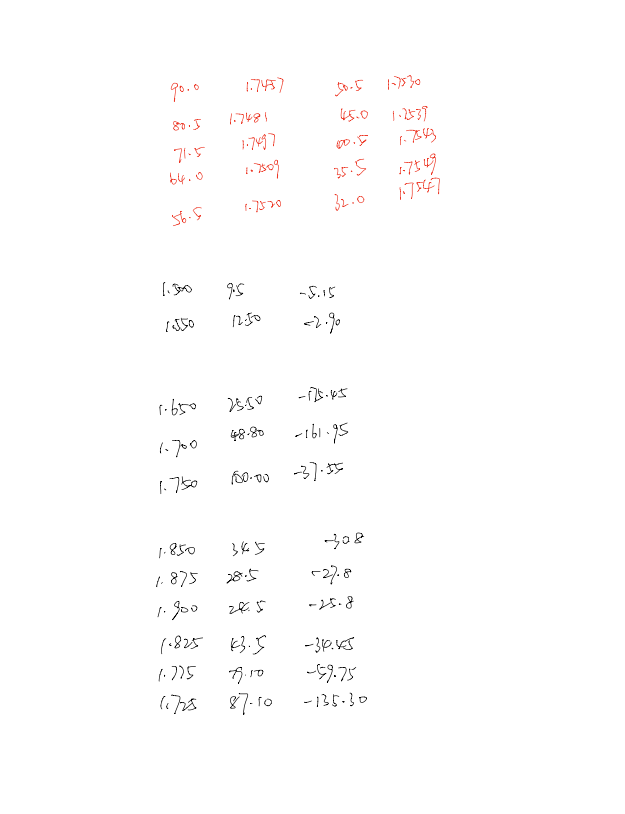 90.0 1.7457 50.5 1.7530
80.5 1.7481 45.0 1.7539
71.5 1.7497 40.5 1.7543
64.0 1.7509 35.5 1.7549
56.5 1.7520 32.0 1.7547
1.500 9.5 -5.15
1.550 12.50 -2.90
1.650 25.50 -175.45
1.700 48.80 -161.95
1.750 100.00 -37.55
1.850 34.5 -30.8
1.875 28.5 -27.8
1.900 24.5 -25.8
1.825 43.5 -34.45
1.775 79.10 -59.75
1.725 87.10 -135.30